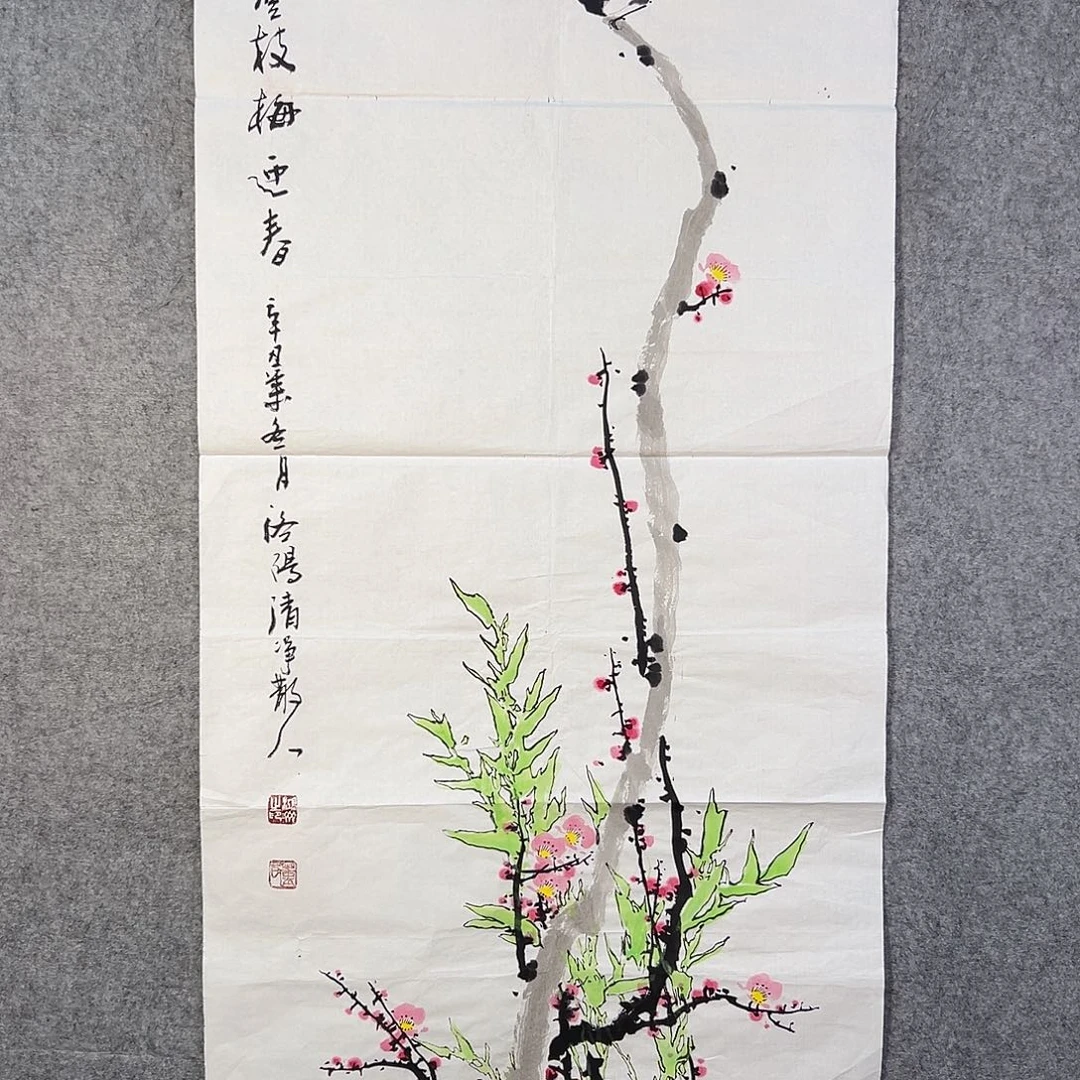 枝梅迎春 辛丑冬月洛陽清净散人